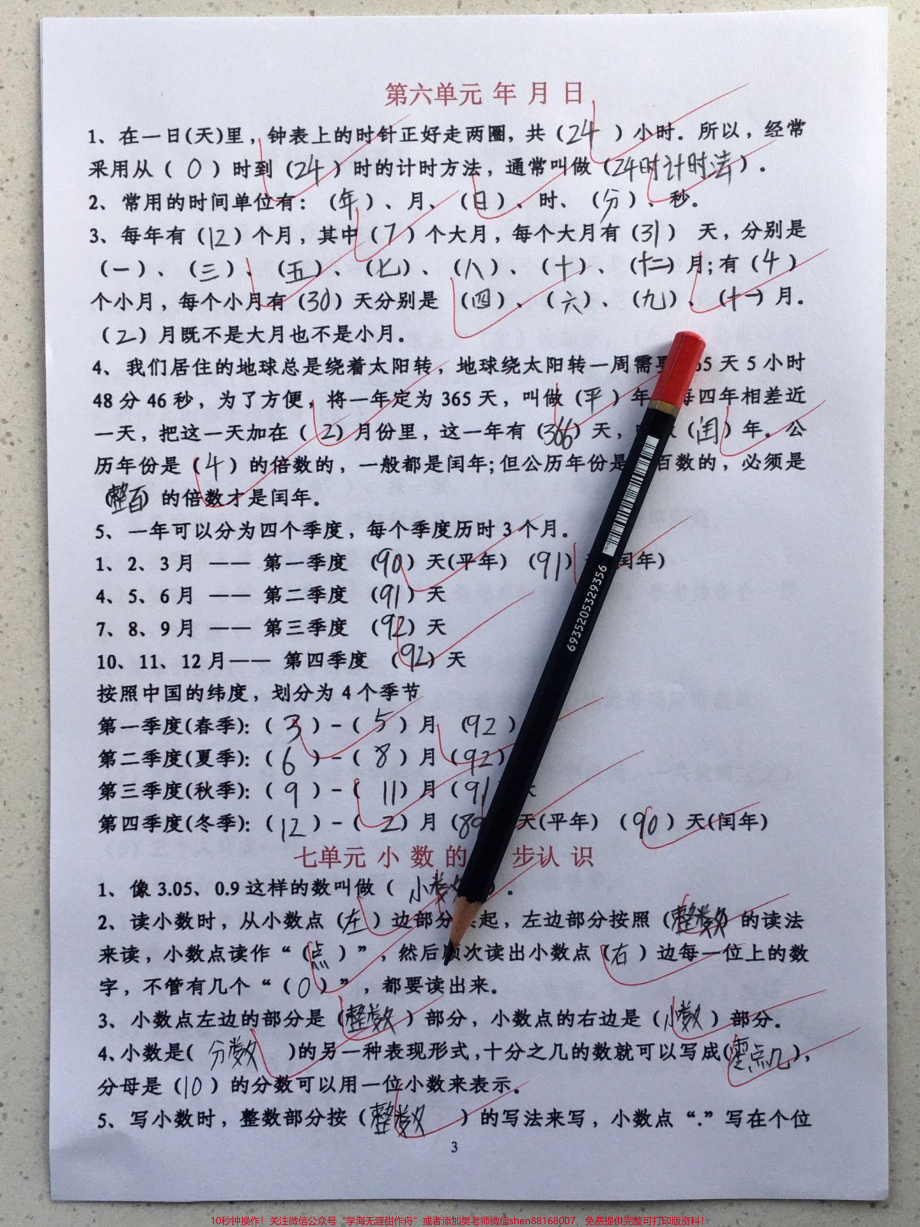 第六单元 年 月 日
1、在一日(天)里，钟表上的时针正好走两圈，共（24）小时。所以，经常
采用从（0）时到（24）时的计时方法，通常叫做（24时计时法）。
2、常用的时间单位有：（年）、月、（日）、时、（分）、秒。
3、每年有（12）个月，其中（7）个大月，每个大月有（31） 天，分别是
（一）、（三）、（五）、（七）、（八）、（十）、（十二）月;有（4）
个小月，每个小月有（30）天分别是 （四）、（六）、（九）、（十一）月。
（2）月既不是大月也不是小月。
4、我们居住的地球总是绕着太阳转，地球绕太阳转一周需 65 天 5 小时
48 分 46 秒，为了方便，将一年定为 365 天，叫做（平）年 每四年相差近
一天，把这一天加在（2）月份里，这一年有（366）天， （闰）年。公
历年份是（4）的倍数的，一般都是闰年;但公历年份是 百数的，必须是
（整百）的倍数才是闰年。
5、一年可以分为四个季度，每个季度历时 3 个月。
1、2、3 月 —— 第一季度 （90）天(平年) （91） 闰年)
4、5、6 月 —— 第二季度 （91）天
7、8、9 月 —— 第三季度 （92）天
10、11、12 月—— 第四季度 （92）天
按照中国的纬度，划分为 4 个季节
第一季度(春季):（3）-（5）月（92）
第二季度(夏季):（6）-（8）月（92）
第三季度(秋季):（9）-（11）月（91 天
第四季度(冬季):（12）-（2）月（89 天(平年) （90）天(闰年)
七单元 小 数 的 步认 识
1、像 3.05、0.9 这样的数叫做（小数）。
2、读小数时，从小数点（左）边部分 起，左边部分按照（整数）的读法
来读，小数点读作“（点）”，然后 次读出小数点（右）边每一位上的数
字，不管有几个“（0）”，都要读出来。
3、小数点左边的部分是（整数）部分，小数点的右边是（小数）部分。
4、小数是（分数）的另一种表现形式，十分之几的数就可以写成（零点几），
分母是（10）的分数可以用一位小数来表示。
5、写小数时，整数部分按（整数）的写法来写，小数点“.”写在个位
3
6935205329356
10秒钟操作！关注微信公众号“学海无涯甜作舟”或者添加樊老师微信shen88168007，免费提供完整可打印版资料！